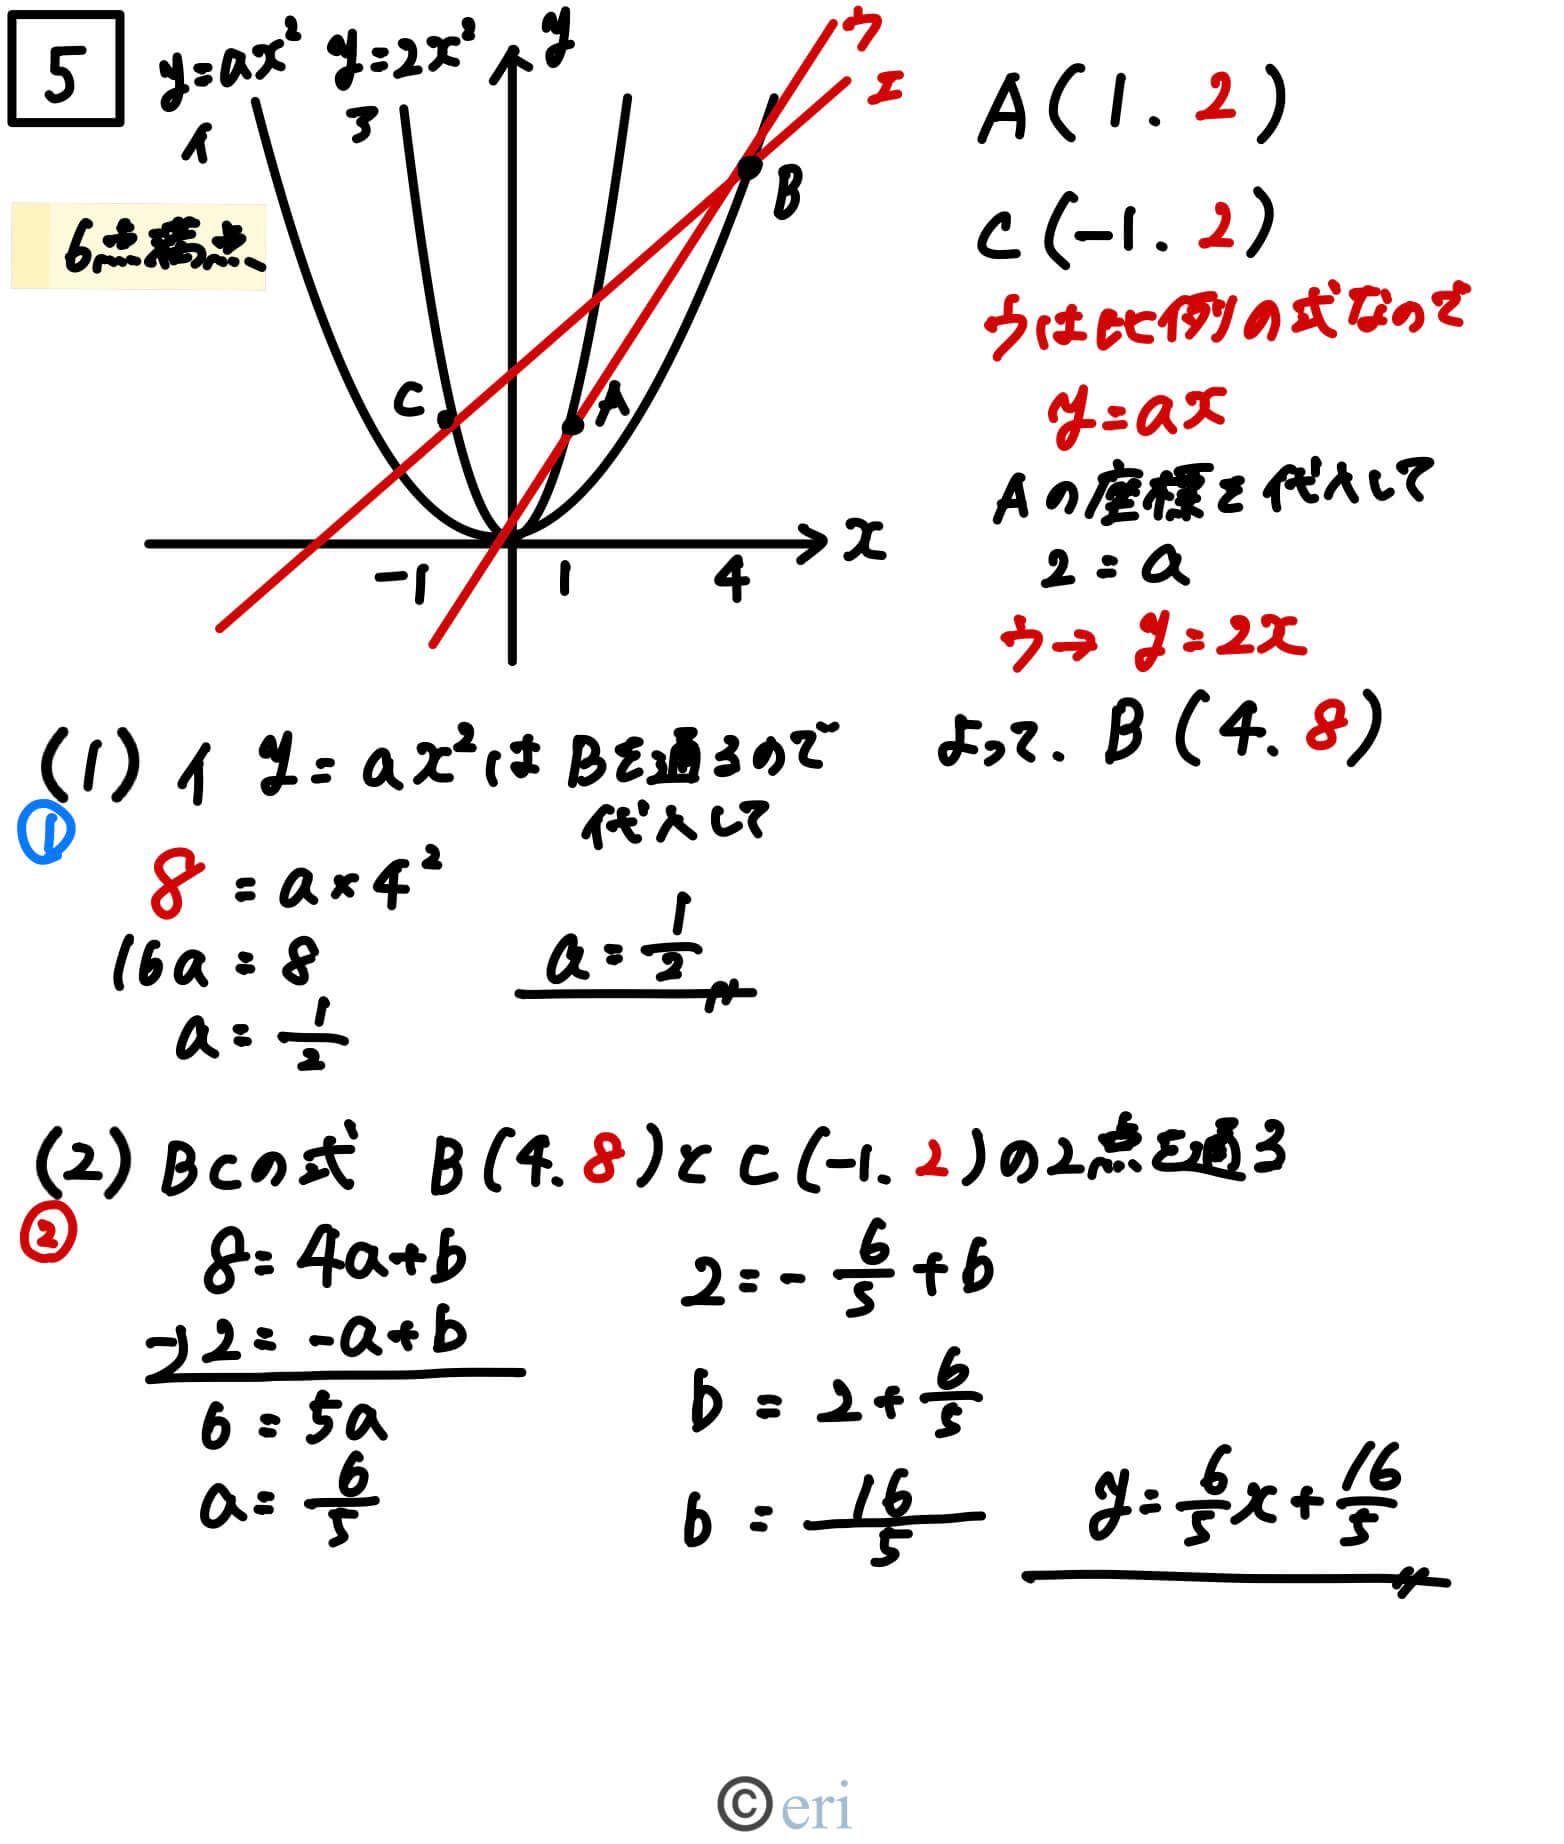 5
y=ax² y=2x² y
イ ア
ウ
エ
6点満点
B
C A
x
-1 1 4
A(1.2)
C(-1.2)
ウは比例の式なので
y=ax
Aの座標を代入して
2=a
ウ→y=2x
よって. B(4.8)
(1) イ y=ax²はBを通るので
代入して
①
8=a×4²
16a=8
a=1/2
a=1/2
(2) BCの式 B(4.8)とC(-1.2)の2点を通る
②
8=4a+b
-)2=-a+b
6=5a
a=6/5
2=-6/5+b
b=2+6/5
b=16/5
y=6/5x+16/5
©eri